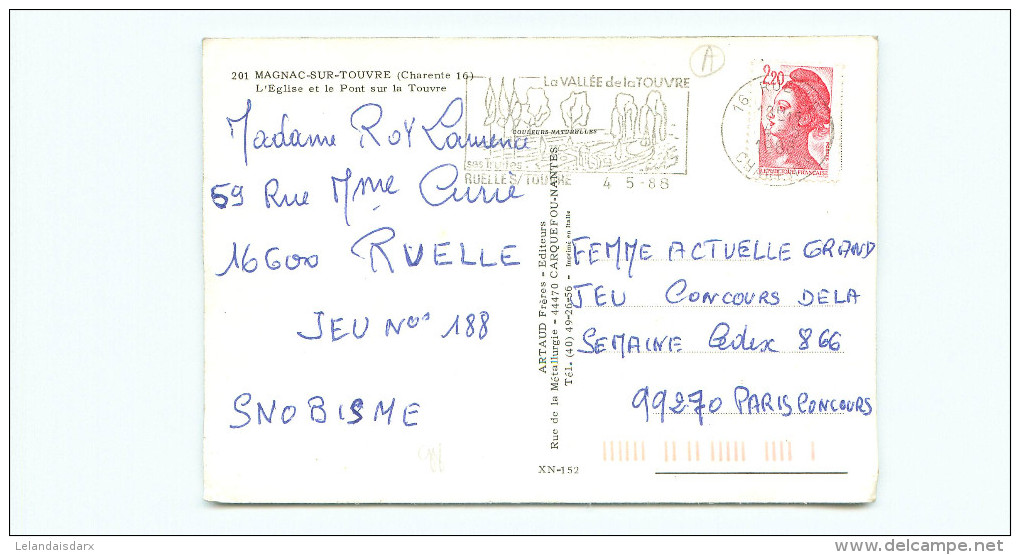 201 MAGNAC-SUR-TOUVRE (Charente 16)
L'Eglise et le Pont sur la Touvre
Madame ROY Laurence
59 Rue Mme Curie
16600 RUELLE
JEU N° 188
SNOBISME
La VALLÉE de la TOUVRE
COULEURS NATURELLES
ses truites
RUELLE S/TOUVRE 4-5-88
A
2,20
ARTAUD Frères - Editeurs
Rue de la Métallurgie - 44470 CARQUEFOU-NANTES
Tél. (40) 49-26-56 - Imprimé en Italie
FEMME ACTUELLE GRAND
JEU CONCOURS DE LA
SEMAINE Cedex 866
99270 PARIS CONCOURS
XN-152
Lelandaisdarx
www.delcampe.net